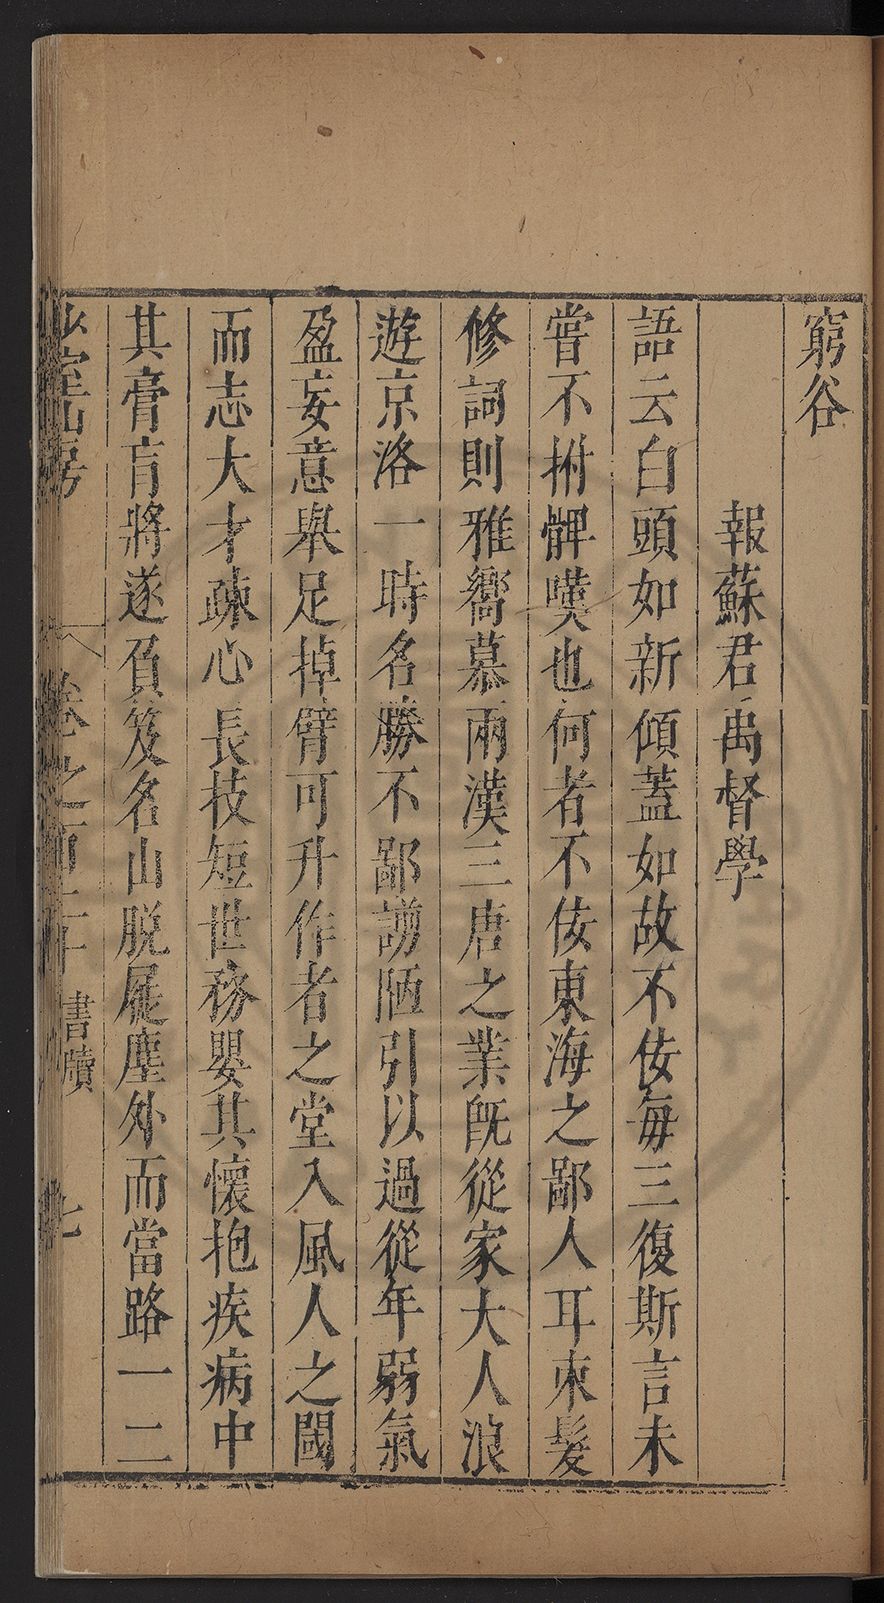 窮谷
報蘇君禹督學
語云白頭如新傾蓋如故不佞每三復斯言未
嘗不拊髀嘆也何者不佞東海之鄙人耳束髮
修詞則雅嚮慕兩漢三唐之業既從家大人浪
遊京洛一時名勝不鄙謭陋引以過從年弱氣
盈妄意舉足掉臂可升作者之堂入風人之閫
而志大才疎心長技短世務嬰其懷抱疾病中
其膏肓將遂負笈名山脫屣塵外而當路一二
少室山房 卷之百二十 書牘 七